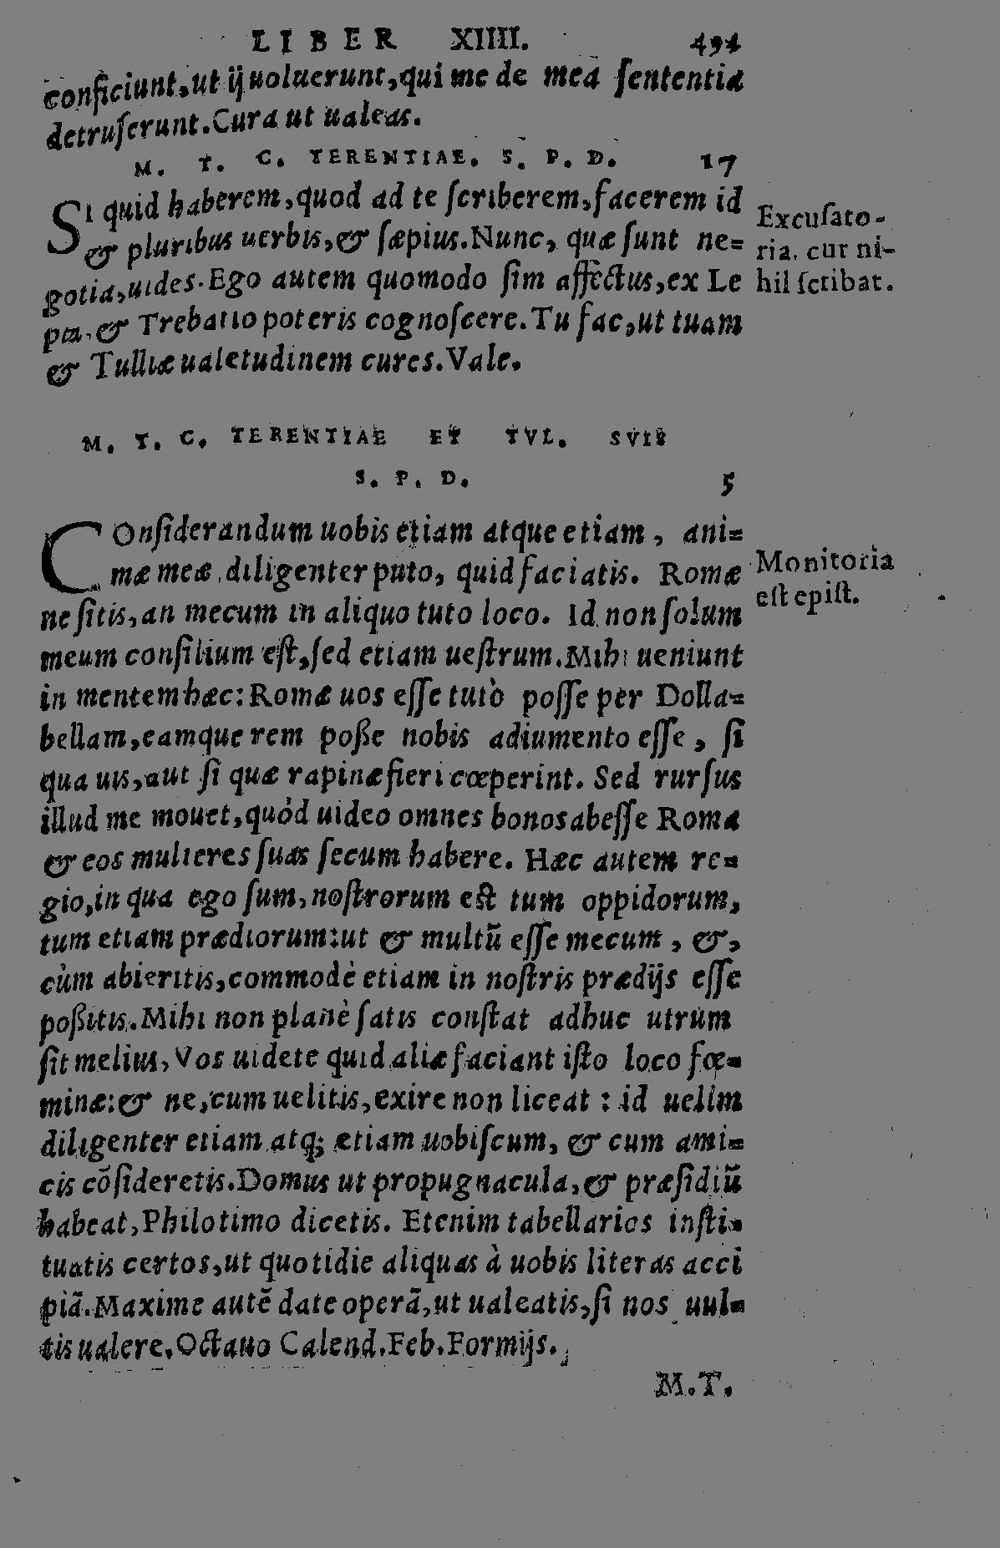 LIBER XIIII. 494
conficiunt,ut ij uoluerunt,qui me de mea ſententia
detruſerunt.Cura ut ualeas.
M. T. C. TERENTIAE. S. P. D. 17
SI quid haberem,quod ad te ſcriberem,facerem id
& pluribus uerbis,& ſæpius.Nunc, quæ ſunt ne=
gotia,uides.Ego autem quomodo ſim affectus,ex Le
pta,& Trebatio poteris cognoſcere.Tu fac,ut tuam
& Tulliæ ualetudinem cures.Vale.
Excuſato-
ria, cur ni-
hil ſcribat.
M. T. C. TERENTIAE ET TVL. SVIS
S. P. D. 5
COnſiderandum uobis etiam atque etiam, ani=
mæ meæ diligenter puto, quid faciatis. Romæ
ne ſitis,an mecum in aliquo tuto loco. Id non ſolum
meum conſilium eſt,ſed etiam ueſtrum.Mihi ueniunt
in mentem hæc:Romæ uos eſſe tutò poſſe per Dolla=
bellam,eamque rem poße nobis adiumento eſſe, ſi
qua uis,aut ſi quæ rapinæ fieri cœperint. Sed rurſus
illud me mouet,quòd uideo omnes bonos abeſſe Roma
& eos mulieres ſuas ſecum habere. Hæc autem re=
gio,in qua ego ſum,noſtrorum eſt tum oppidorum,
tum etiam prædiorum:ut & multũ eſſe mecum, &,
cùm abieritis,commodè etiam in noſtris prædijs eſſe
poßitis.Mihi non planè ſatis conſtat adhuc utrum
ſit melius,Vos uidete quid aliæ faciant iſto loco fœ=
minæ:& ne,cum uelitis,exire non liceat : id uelim
diligenter etiam atq; etiam uobiſcum, & cum ami=
cis cõſideretis.Domus ut propugnacula,& præſidiũ
habeat,Philotimo dicetis. Etenim tabellarios inſti=
tuatis certos,ut quotidie aliquas à uobis literas acci
piã.Maxime autẽ date operã,ut ualeatis,ſi nos uul=
tis ualere.Octauo Calend.Feb.Formijs.
Monitoria
eſt epiſt.
M.T.